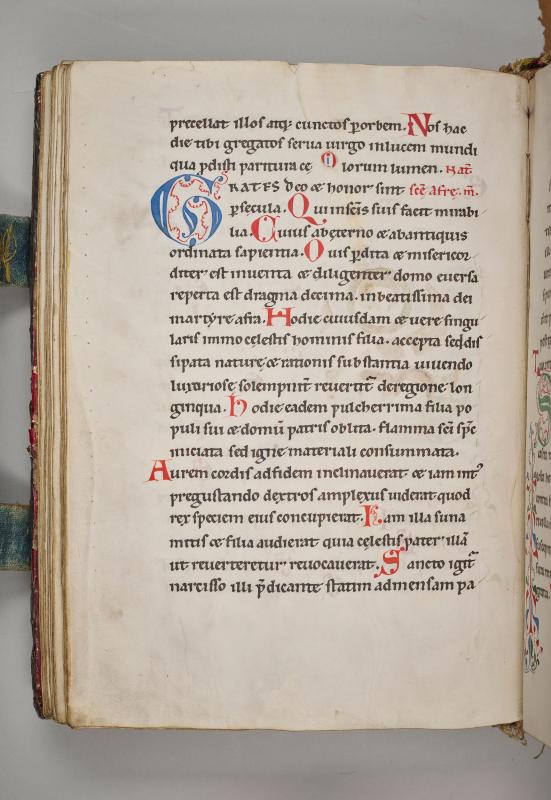 precellat illos atq; cunctos ꝑ orbem. Nos hac
die tibi gregatos serua uirgo inlucem mundi
qua ꝓdisti paritura cę Qi iorum lumen. Nat.
GRATES deo & honor sint scẽ afre. m̃.
ꝑ secula. Qui inscĩs suis facit mirabi
lia. Cuius ab ęterno & abantiquis
ordinata sapientia. Ouis ꝑdita & misericor
diter est inuenta & diligenter domo euersa
reperta est dragma decima. inbeatissima dei
martyre afra. Hodie cuiusdam & vere singu
laris immo cęlestis hominis filia. accepta sed dis
sipata naturę & rationis substantia uiuendo
luxuriosę solempnit̃ reuertit̃ deregione lon
ginqua. Hodie eadem pulcherrima filia po
puli sui & domũ patris oblita. flamma scĩ sp̃c
iniciata sed igne materiali consummata.
Aurem cordis adfidem inclinauerat & iam int᷒
pregustando dextros amplexus uiderat quod
rex speciem eius concupierat. Nam illa suna
mitis & filia audierat quia cęlestis pater illã
ut reuerteretur reuocauerat. Sancto igit̃
narcisso illi p̃dicante statim admensam pa